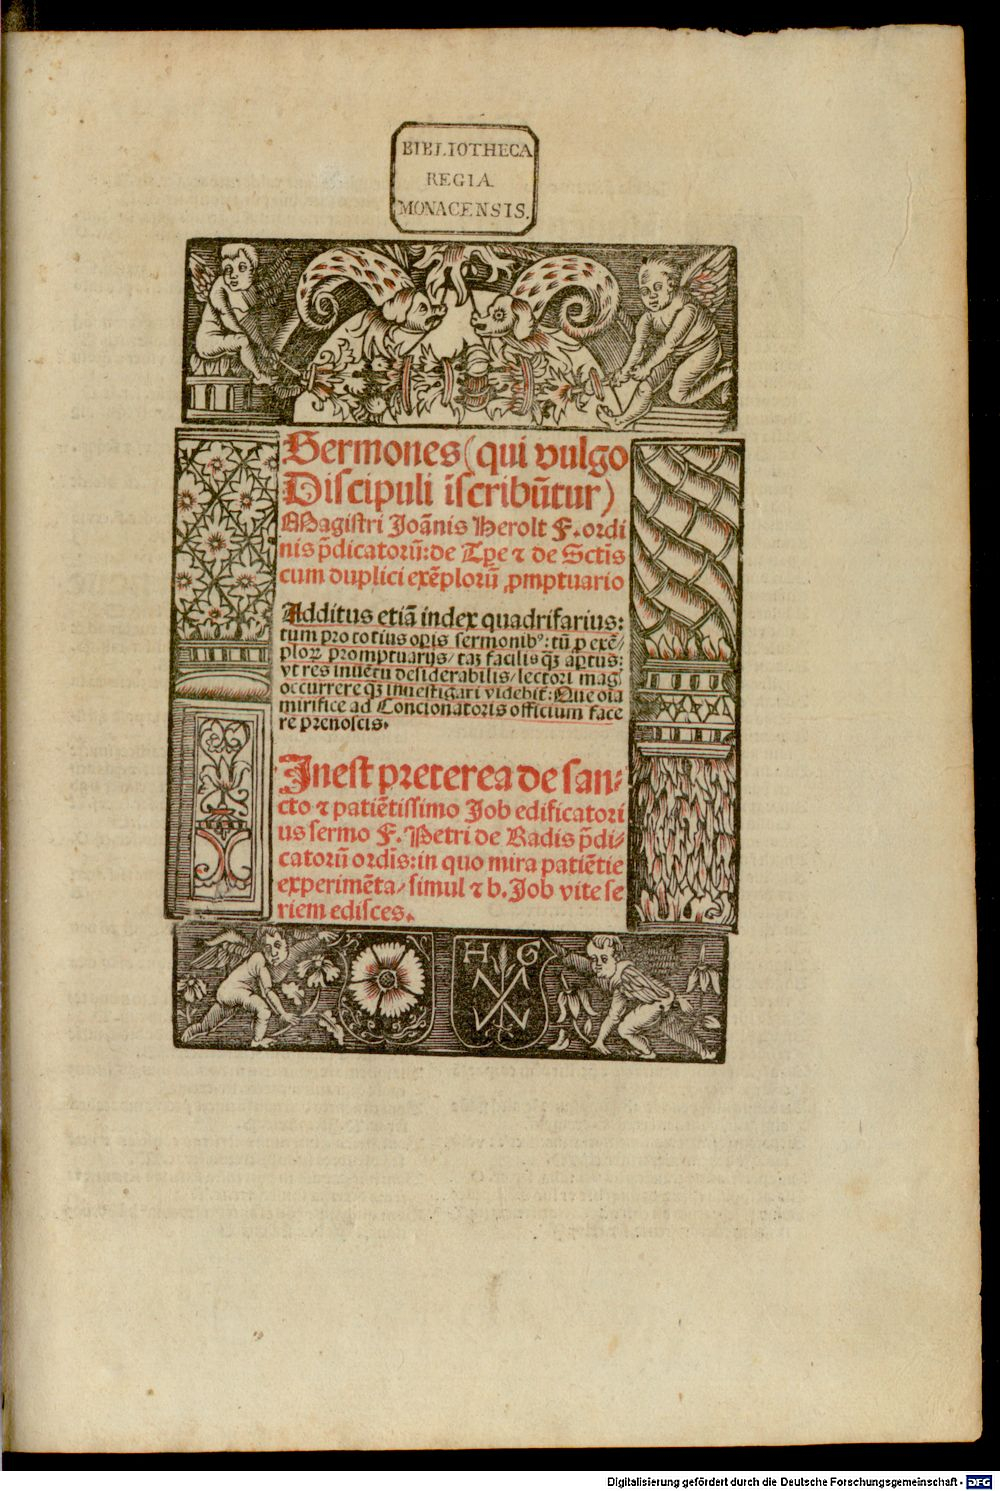 BIBLIOTHECA
REGIA
MONACENSIS.
Sermones (qui vulgo
Discipuli īscribūtur)
Magistri Joānis Herolt F. ordi
nis p̄dicatorū: de Tp̄e ⁊ de Sct̄is
cum duplici exēplorū ꝓmptuario
Additus etiā index quadrifarius:
tum pro totius oꝑis sermonibꝰ: tū ꝓ exē/
ploꝝ promptuarijs/ taꝫ facilis qꝫ aptus:
vt res inuētu desiderabilis/ lectori mag̕
occurrere qꝫ inuestigari videbit̄: Que oīa
mirifice ad Concionatoris officium face
re prenoscis.
Inest preterea de san-
cto ⁊ patiētissimo Job edificatori
us sermo F. Petri de Radis p̄di-
catorū ordīs: in quo mira patiētie
experimēta/ simul ⁊ b. Job vite se
riem edisces.
H G
Digitalisierung gefördert durch die Deutsche Forschungsgemeinschaft - DFG